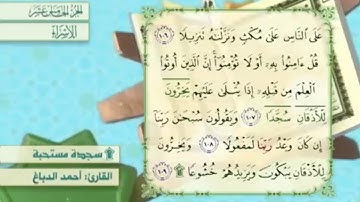 الجزء الخامس عشر
الإسراء
عَلَى ٱلنَّاسِ عَلَىٰ مُكْثٍ وَنَزَّلْنَٰهُ تَنزِيلًا ١٠٦
قُلْ ءَامِنُوا۟ بِهِۦٓ أَوْ لَا تُؤْمِنُوٓا۟ إِنَّ ٱلَّذِينَ أُوتُوا۟
ٱلْعِلْمَ مِن قَبْلِهِۦٓ إِذَا يُتْلَىٰ عَلَيْهِمْ يَخِرُّونَ
لِلْأَذْقَانِ سُجَّدًا ١٠٧ وَيَقُولُونَ سُبْحَٰنَ رَبِّنَآ
إِن كَانَ وَعْدُ رَبِّنَا لَمَفْعُولًا ١٠٨ وَيَخِرُّونَ
لِلْأَذْقَانِ يَبْكُونَ وَيَزِيدُهُمْ خُشُوعًا ۩ ١٠٩
۩ سجدة مستحبة
القارئ: أحمد الدباغ